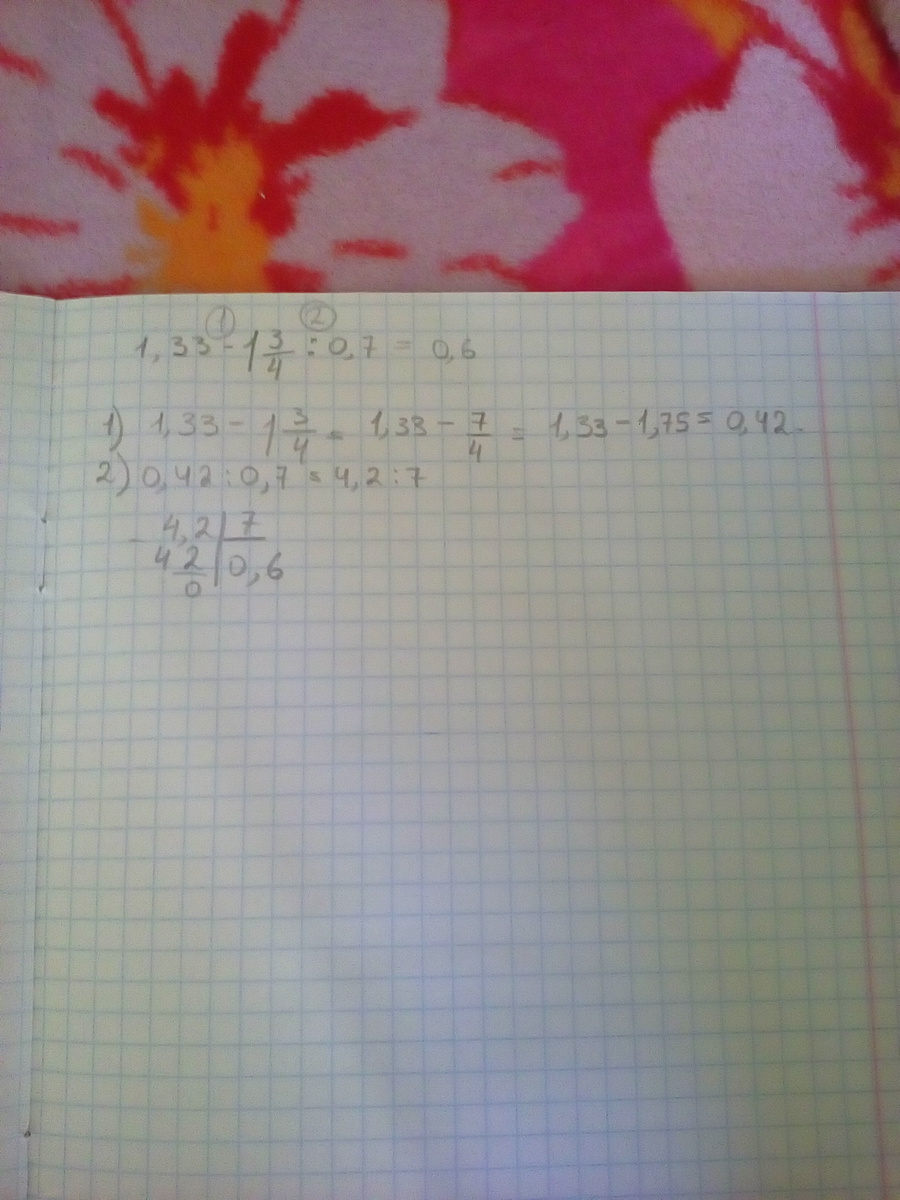 ① ②
1,33 - 1 3/4 : 0,7 = 0,6
1) 1,33 - 1 3/4 = 1,33 - 7/4 = 1,33 - 1,75 = 0,42
2) 0,42 : 0,7 = 4,2 : 7
- 4,2 | 7
42 | 0,6
0